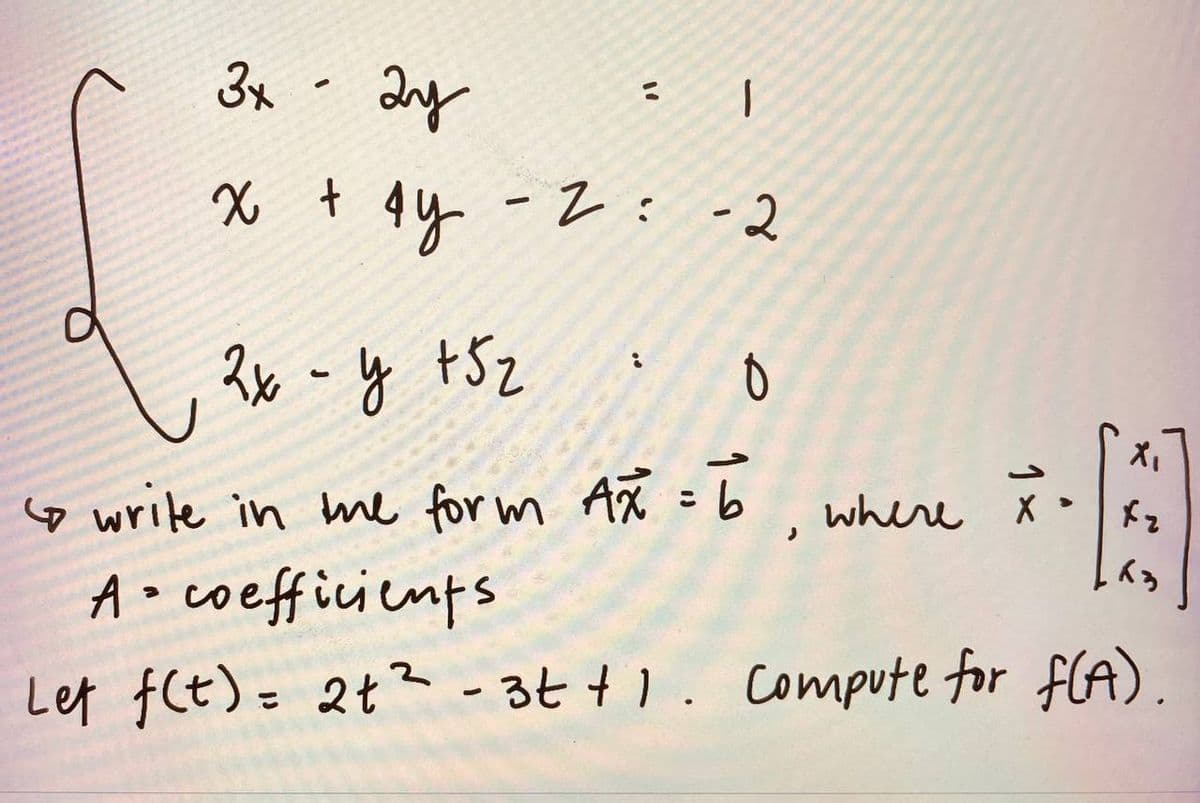 3x - 2y = 1
x + 4y - z = -2
2x - y + 5z = 0
↳ write in the form Ax⃗ = b⃗, where x⃗ = [x₁ x₂ x₃]
A = coefficients
Let f(t) = 2t² - 3t + 1. Compute for f(A).